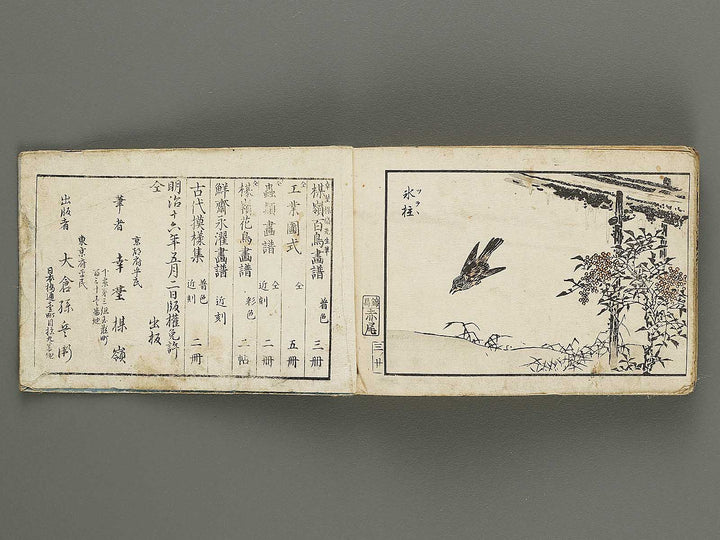 氷柱
ツラヽ
赤尾
三ノ廿
楳嶺百鳥畫譜 着色 三冊
工業圖式 全 五冊
蟲類畫譜 全 近刻 二冊
楳嶺花鳥畫譜 全 彩色 二帖
鮮齋永濯畫譜 近刻
古代摸樣集 着色 近刻 二冊
明治十六年五月二日版權免許
全 出板
京都府平民
筆者 幸堂楳嶺
東京府平民
出版者 大倉孫兵衛
日本橋通壹町目拾九番地